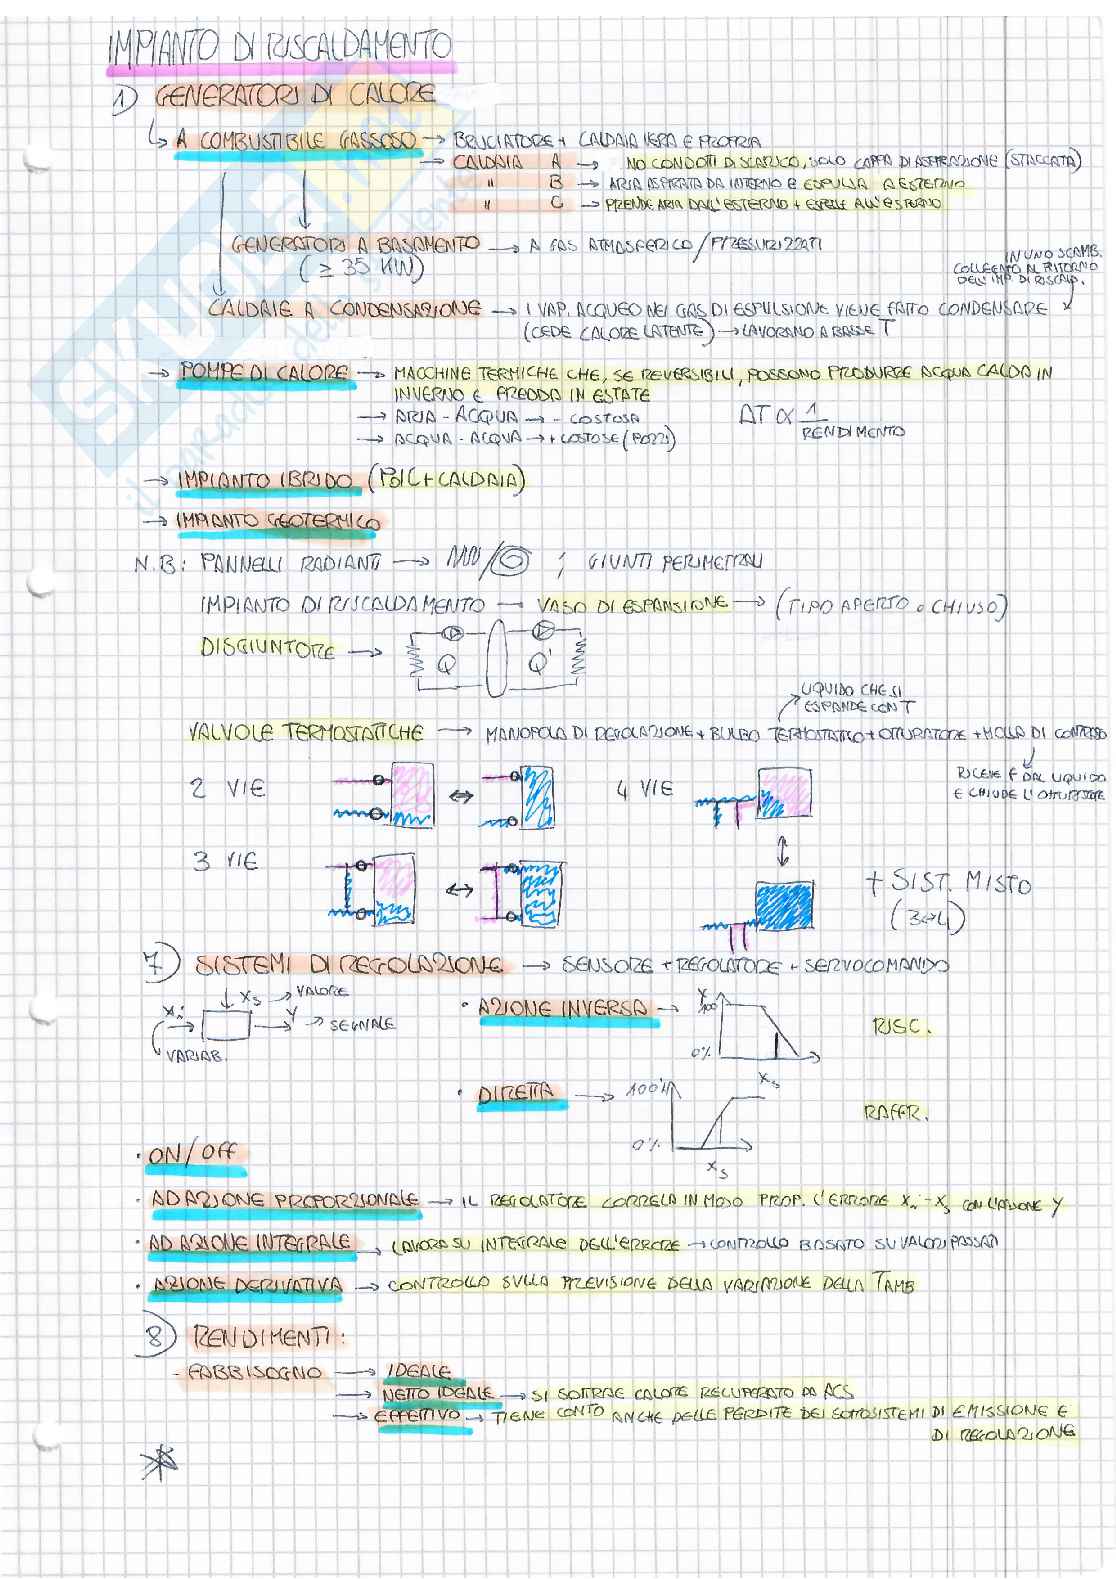 IMPIANTO DI RISCALDAMENTO
1) GENERATORI DI CALORE
↳ A COMBUSTIBILE GASSOSO → BRUCIATORE + CALDAIA VERA E PROPRIA
→ CALDAIA A → NO CONDOTI DI SCARICO, SOLO CAPPA DI ASPIRAZIONE (STACCATA)
" B → ARIA ASPIRATA DA INTERNO E ESPULSA A ESTERNO
" C → PRENDE ARIA DALL'ESTERNO + ESPELLE ALL'ESTERNO
GENERATORI A BASAMENTO → A GAS ATMOSFERICO / PRESSURIZZATI
(≥ 35 KW)
IN UNO SCAMB.
COLLEGATO AL RITORNO
DELL'IMP. DI RISCALD.
CALDAIE A CONDENSAZIONE → I VAP. ACQUEO NEI GAS DI ESPULSIONE VIENE FATTO CONDENSARE
(CEDE CALORE LATENTE) → LAVORANO A BASSE T
→ POMPE DI CALORE → MACCHINE TERMICHE CHE, SE REVERSIBILI, POSSONO PRODURRE ACQUA CALDA IN
INVERNO E FREDDA IN ESTATE
→ ARIA - ACQUA → - COSTOSA
→ ACQUA - ACQUA → + COSTOSE (POZZI)
ΔT ∝ 1/RENDIMENTO
→ IMPIANTO IBRIDO (PdC + CALDAIA)
→ IMPIANTO GEOTERMICO
N.B: PANNELLI RADIANTI → / ; GIUNTI PERIMETRALI
IMPIANTO DI RISCALDAMENTO → VASO DI ESPANSIONE → (TIPO APERTO o CHIUSO)
DISGIUNTORE → Q Q'
LIQUIDO CHE SI
ESPANDE CON T
VALVOLE TERMOSTATICHE → MANOPOLA DI REGOLAZIONE + BULBO TERMOSTATICO + OTTURATORE + MOLLA DI CONTRASTO
RICEVE F DAL LIQUIDO
E CHIUDE L'OTTURATORE
2 VIE ↔ 4 VIE
3 VIE ↔
+ SIST. MISTO
(3↔4)
7) SISTEMI DI REGOLAZIONE → SENSORE + REGOLATORE + SERVOCOMANDO
Xs → VALORE
Xi Y → SEGNALE
VARIAB.
• AZIONE INVERSA → Y 100 0% Xs RISC.
• DIRETTA → 100% 0% Xs RAFFR.
• ON/OFF
• AD AZIONE PROPORZIONALE → IL REGOLATORE CORRELA IN MODO PROP. L'ERRORE Xi - Xs CON L'AZIONE Y
• AD AZIONE INTEGRALE → LAVORA SU INTEGRALE DELL'ERRORE → CONTROLLO BASATO SU VALORI PASSATI
• AZIONE DERIVATIVA → CONTROLLO SULLA PREVISIONE DELLA VARIAZIONE DELLA TAMB
8) RENDIMENTI:
- FABBISOGNO → IDEALE
→ NETTO IDEALE → SI SOTTRAE CALORE RECUPERATO DA ACS
→ EFFETTIVO → TIENE CONTO ANCHE DELLE PERDITE DEI SOTTOSISTEMI DI EMISSIONE E
DI REGOLAZIONE